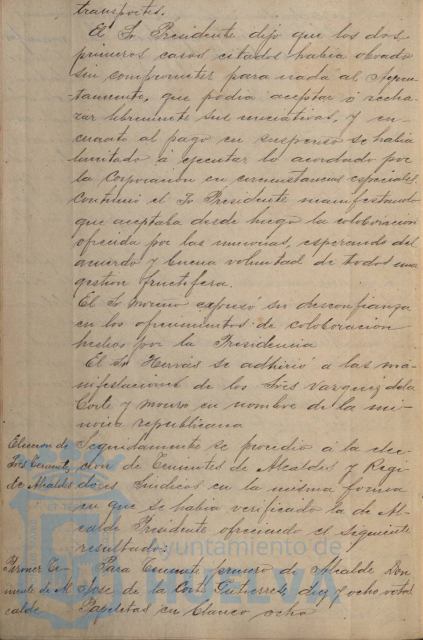 transportes.
El Sr Presidente dijo que los dos
primeros casos citados habia obrado
sin comprometer para nada al Ayun-
-tamiento, que podia aceptar ó recha-
zar libremente sus iniciativas, y en
cuanto al pago en suspenso se habia
limitado á ejecutar lo acordado por
la Corporación en circunstancias especiales.
Continuó el Sr Presidente manifestando
que aceptaba desde luego la coloboración
ofrecida por las minorias, esperando del
acuerdo y buena voluntad de todos una
gestion fructifera.
El Sr Moreno expuso su desconfianza
en los ofrecimientos de coloboración
hechos por la Presidencia
El Sr Hervás se adhirió a las ma-
nifestaciones de los Sres Vazquez de la
Corte y Moreno en nombre de la mi-
noria republicana
Eleccion de Seguidamente se procedio á la elec-
Sres Tenientes cion de Tenientes de Alcaldes y Regi-
de Alcaldes dores Sindicos en la misma forma
en que se habia verificado la de Al-
calde Presidente ofreciendo el siguiente
resultado:
Primer Te- Para Teniente primero de Alcalde Don
niente de Al José de la Corte Gutierrez, diez y ocho votos
calde Papeletas en blanco ocho
Ayuntamiento de
HUELVA